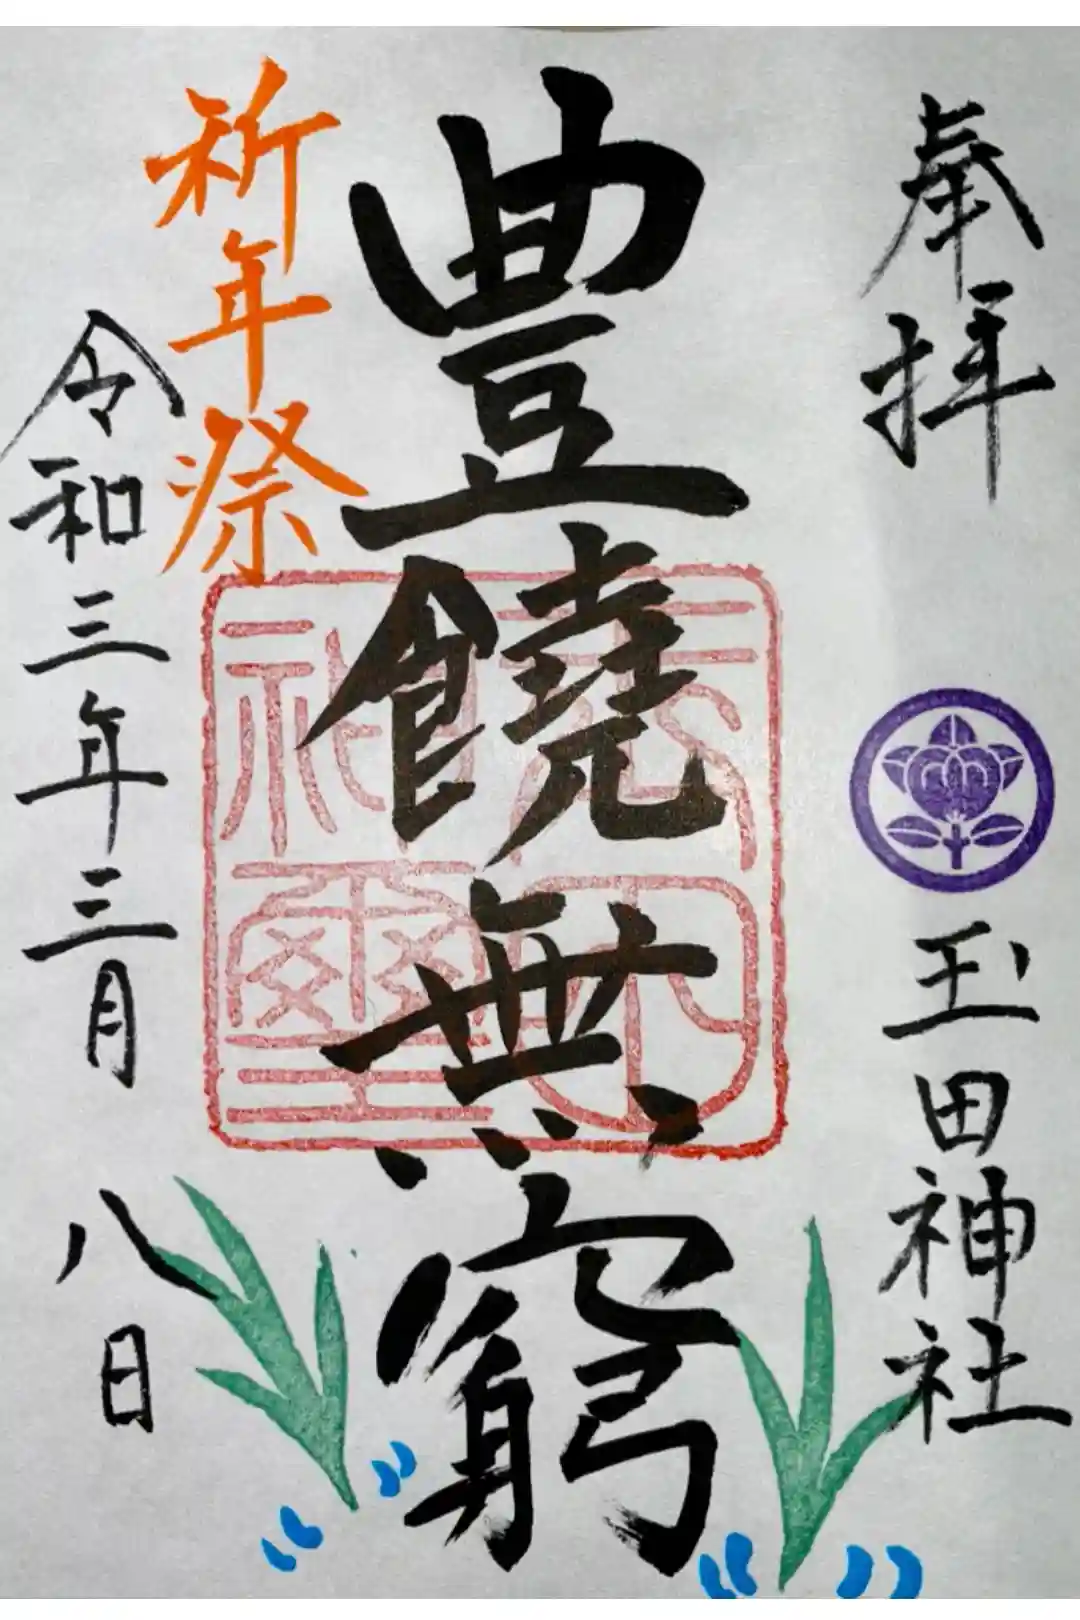 奉拝
玉田神社
豊饒無窮
祈年祭
令和三年三月八日